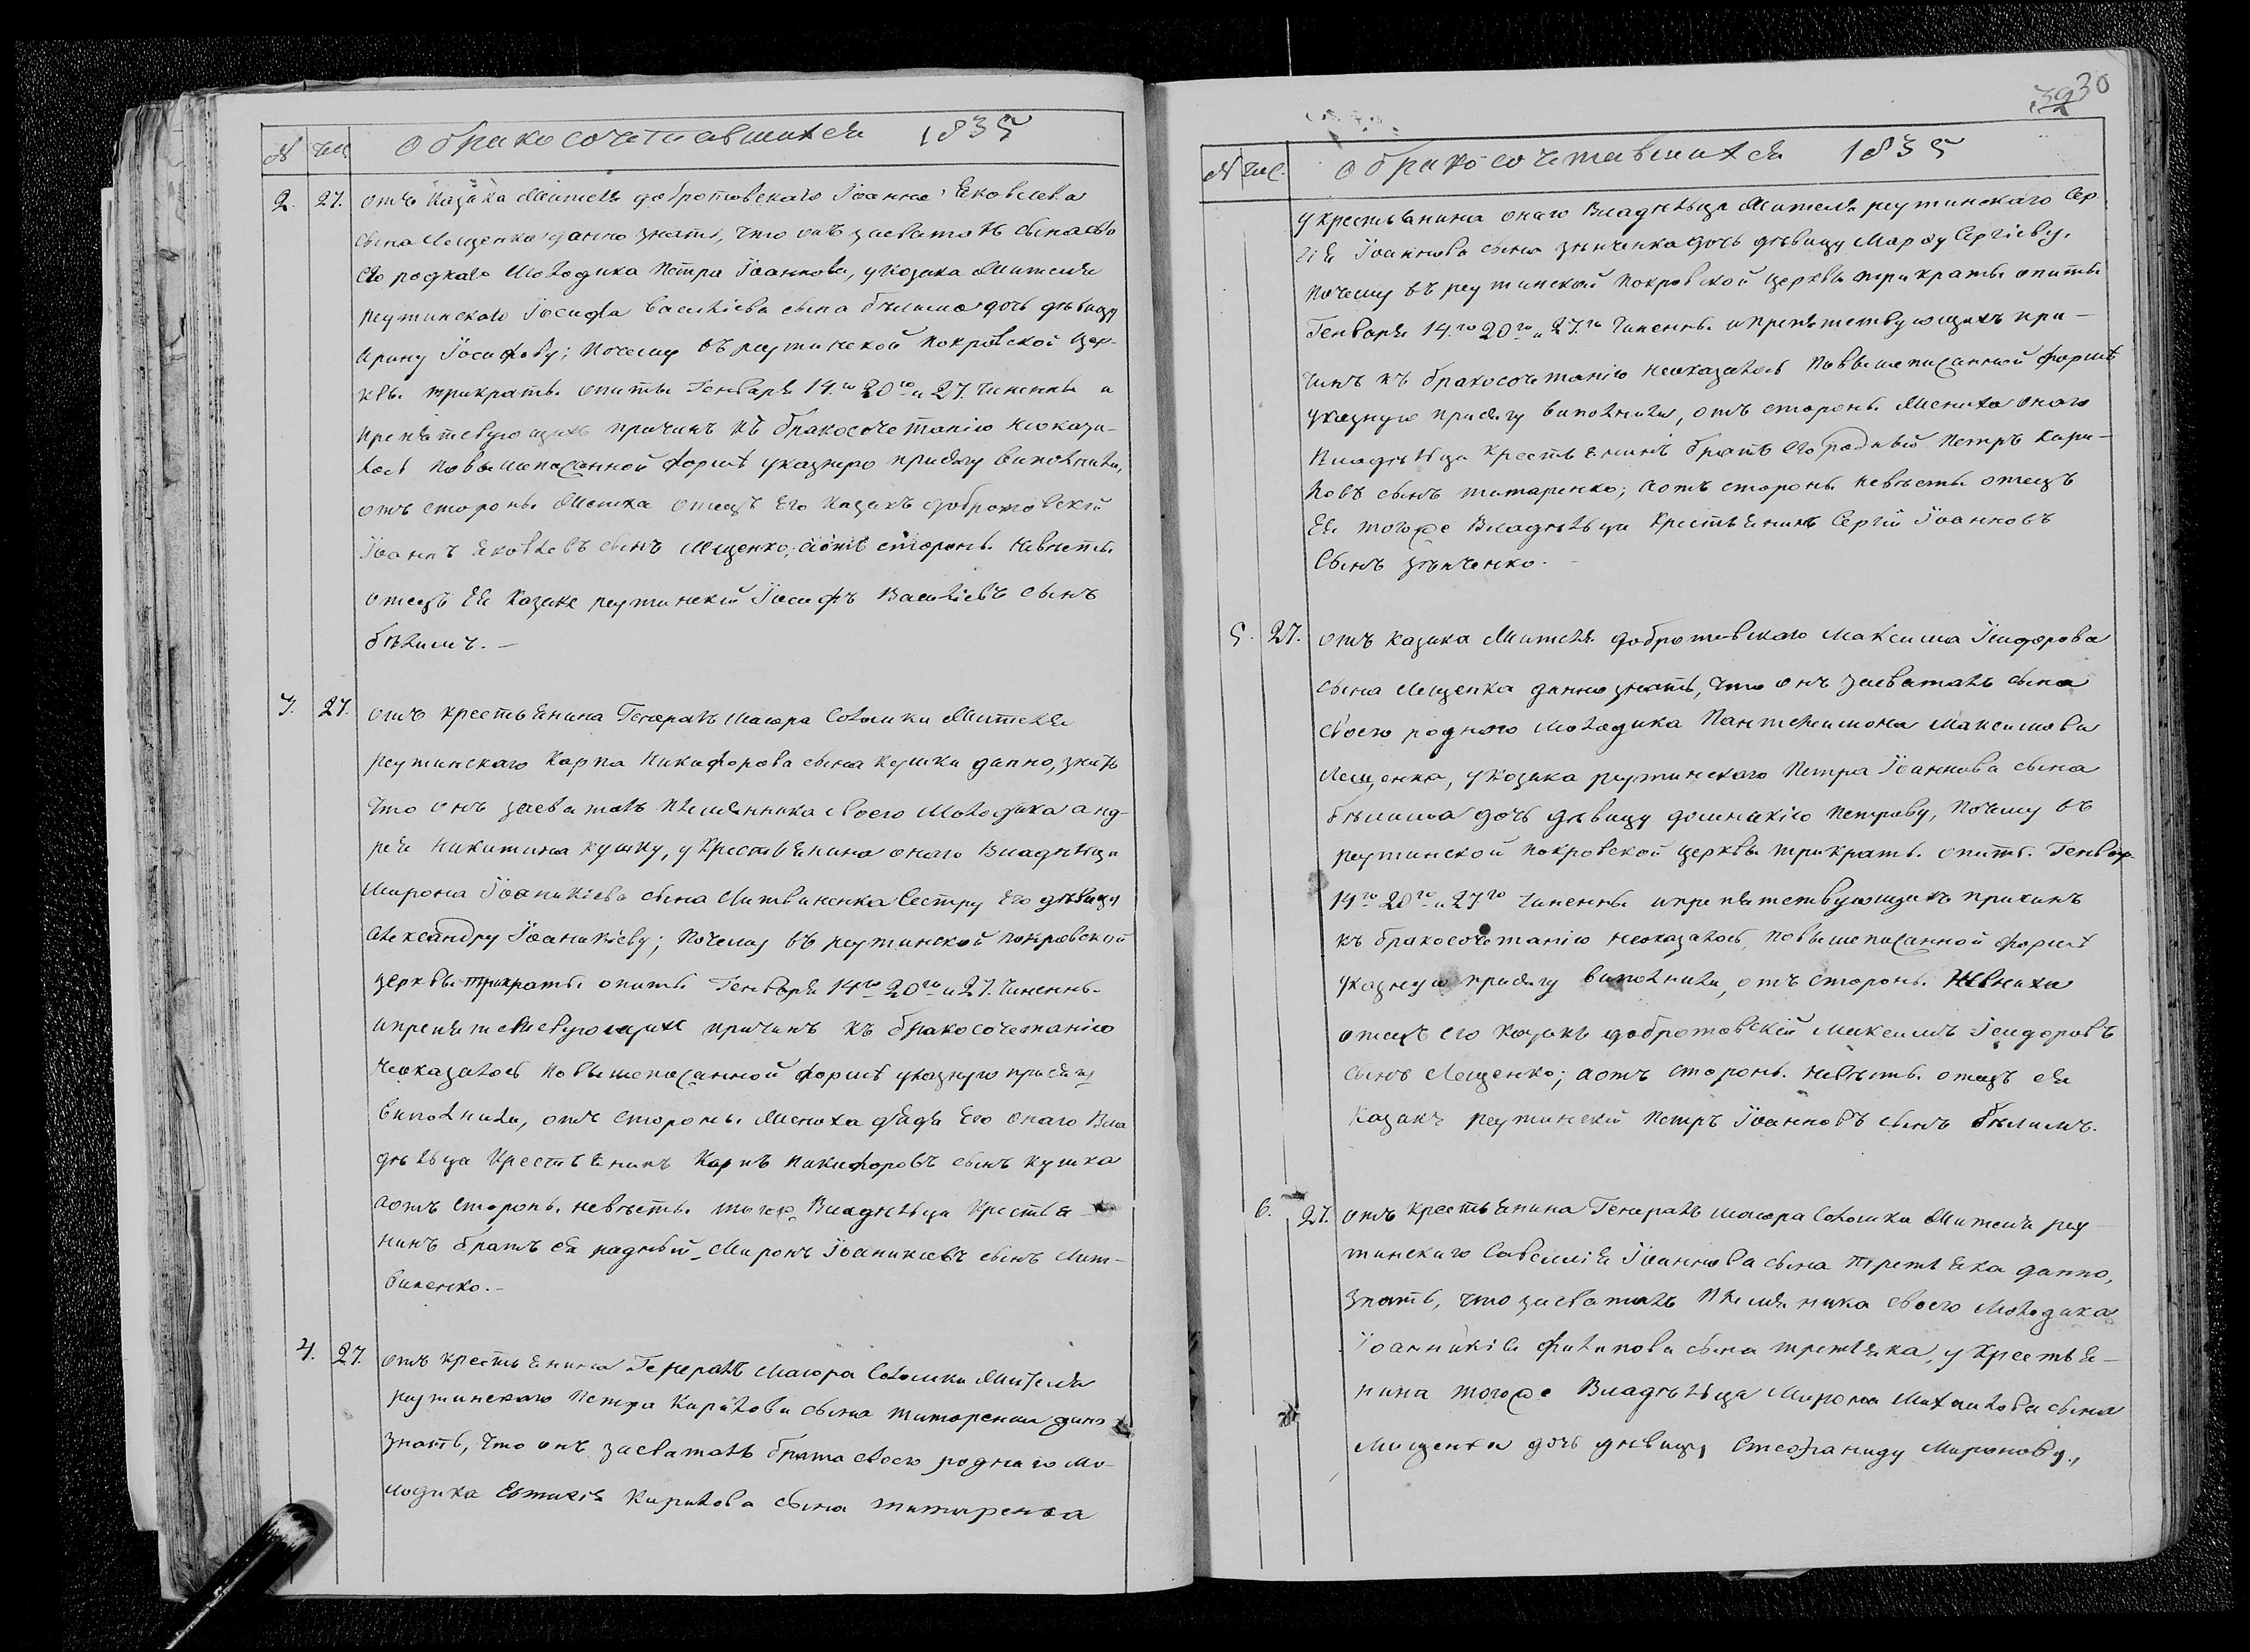 № чис. о бракосочетавшихся 1835
2. 27. отъ казака жителя добротовского Іоанна Яковлева
сына Лещенка данно знать, что онъ засваталъ сына сво
его роднаго молодика Петра Іоаннова, у козака жителя
реутинского Іосифа Василіева сына бѣлима дочь дѣвицу
Ирину Іосифову; почему въ реутинской покровской цер-
квѣ трикраты опиты Генваря 14.го 20го и 27. чиненны и
препятствующихъ причинъ къ бракосочетанію неоказа-
лось повышеписанной формѣ указную присягу виполнили,
отъ стороны жениха отецъ его казакъ добротовскій
Іоаннъ Яковлевъ сынъ Лещенко; аотъ стороны невѣсты
отецъ ея казакъ реутинскій Іосифъ Василіевъ сынъ
бѣлимъ. —
3. 27. отъ крестьянина Генералъ маіора Соломки жителя
реутинскаго Карпа Никифорова сына кушки данно, знать
что онъ засваталъ племянника своего молодика анд-
рея никитина кушку, у крестьянина онаго владѣльца
Мирона Іоаникіева сына Литвиненка сестру его дѣвицу
александру Іоаникіеву; почему въ реутинской покровской
церквѣ трикраты опиты Генваря 14го 20го и 27. чиненны
ипрепятствующихъ причинъ къ бракосочетанію
неоказалось повышеписанной формѣ указную присягу
виполнили, отъ стороны жениха дядя его онаго вла
дѣльца крестьянинъ Карпъ никифоровъ сынъ кушка
аотъ стороны невѣсты тогоже владѣльца крестья
нинъ братъ ея родный Миронъ Іоаникіевъ сынъ Лит-
виненко. —
4. 27. отъ крестьянина Генералъ маіора Соломки жителя
реутинского Петра Карпова сына титаренка данно
знать, что онъ засваталъ брата своего роднаго мо-
лодика Евтихія сына титаренка
30
№ чис. о бракосочетавшихся 1835
у крестьянина онаго владѣльца жителя реутинскаго Сер
гія Іоаннова сына зѣнченка дочь дѣвицу Марфу Сергіеву,
почему въ реутинской покровской церквѣ трикраты опиты
Генваря 14.го 20го и 27.го чиненны ипрепятствующихъ при-
чинъ къ бракосочетанію неоказалось повышеписанной формѣ
указную присягу виполнили, отъ стороны жениха онаго
владѣльца крестьянинъ братъ его родный Петръ
сынъ титаренко; аотъ стороны невѣсты отецъ
ея тогоже владѣльца крестьянинъ Сергій Іоанновъ
сынъ зѣнченко. —
5. 27. отъ казака жителя добротовскаго максима Ісидорова
сына Лещенка данно знать, что онъ засваталъ сына
своего роднаго молодика Пантелеимона максимова
Лещенка, у козака реутинского Петра Іоаннова сына
бѣлима дочь дѣвицу домникію петрову, почему въ
реутинской покровской церквѣ трикраты опиты Генвар
14го 20го и 27го чиненны ипрепятствующихъ причинъ
къ бракосочетанію неоказалось, повышеписанной формѣ
указную присягу виполнили, отъ стороны жениха
отецъ его козакъ добротовскій максимъ Ісидоровъ
сынъ Лещенко; аотъ стороны невѣсты отецъ ея
казакъ реутинскій Петръ Іоанновъ сынъ бѣлимъ.
6. 27. отъ крестьянина Генералъ маіора Соломки жителя реу
тинскаго Савелия Іоаннова сына третяка данно,
знать, что засваталъ племяника своего молодика
Іоанникія филипова сына третяка, у крестья-
нина тогоже владѣльца Мирона Михаилова сына
Мищенка дочь дѣвицу Стефаниду Миронову,